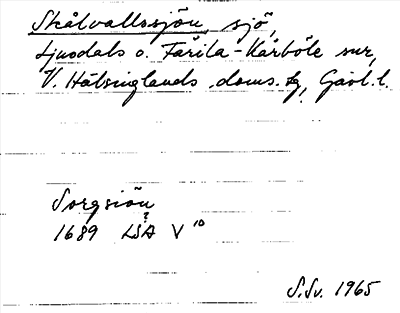 Skålvallssjön, sjö,
Ljusdals o. Färila-Kårböle snr,
V. Hälsinglands doms.tg, Gävl.l.
Sorgsiön
?
1689 LSA V 10
S.Sv. 1965